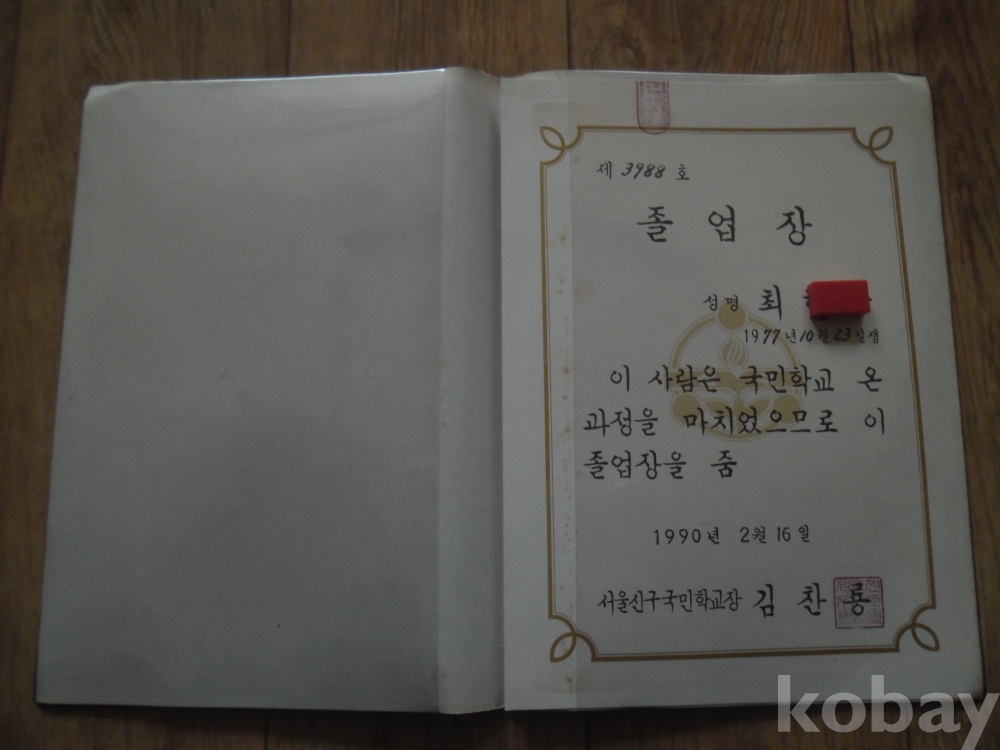 제 3988 호
졸 업 장
성명 최
1977년 10월 23일생
이 사람은 국민학교 온
과정을 마치었으므로 이
졸업장을 줌
1990년 2월 16일
서울신구국민학교장 김 찬 룡
kobay